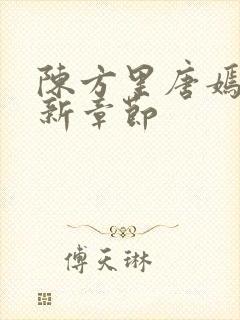 陳方星唐嫣
新章節
傅天琳